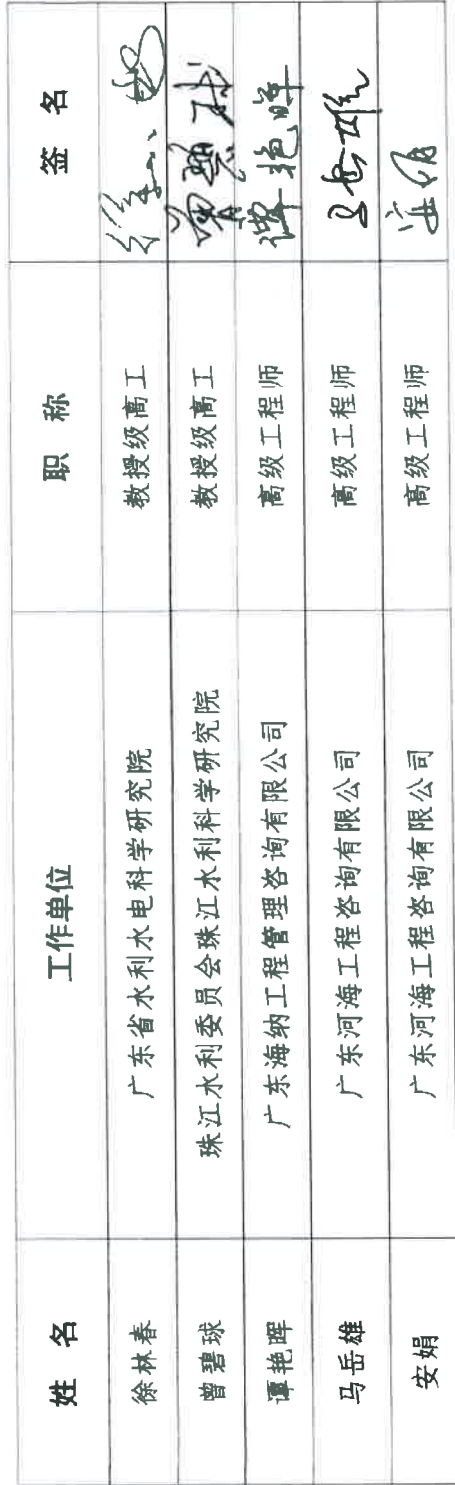 姓 名 工作单位 职 称 签 名
徐林春 广东省水利水电科学研究院 教授级高工
曾碧球 珠江水利委员会珠江水利科学研究院 教授级高工 曾碧球
谭艳晖 广东海纳工程管理咨询有限公司 高级工程师 谭艳晖
马岳雄 广东河海工程咨询有限公司 高级工程师 马岳雄
安娟 广东河海工程咨询有限公司 高级工程师 安娟